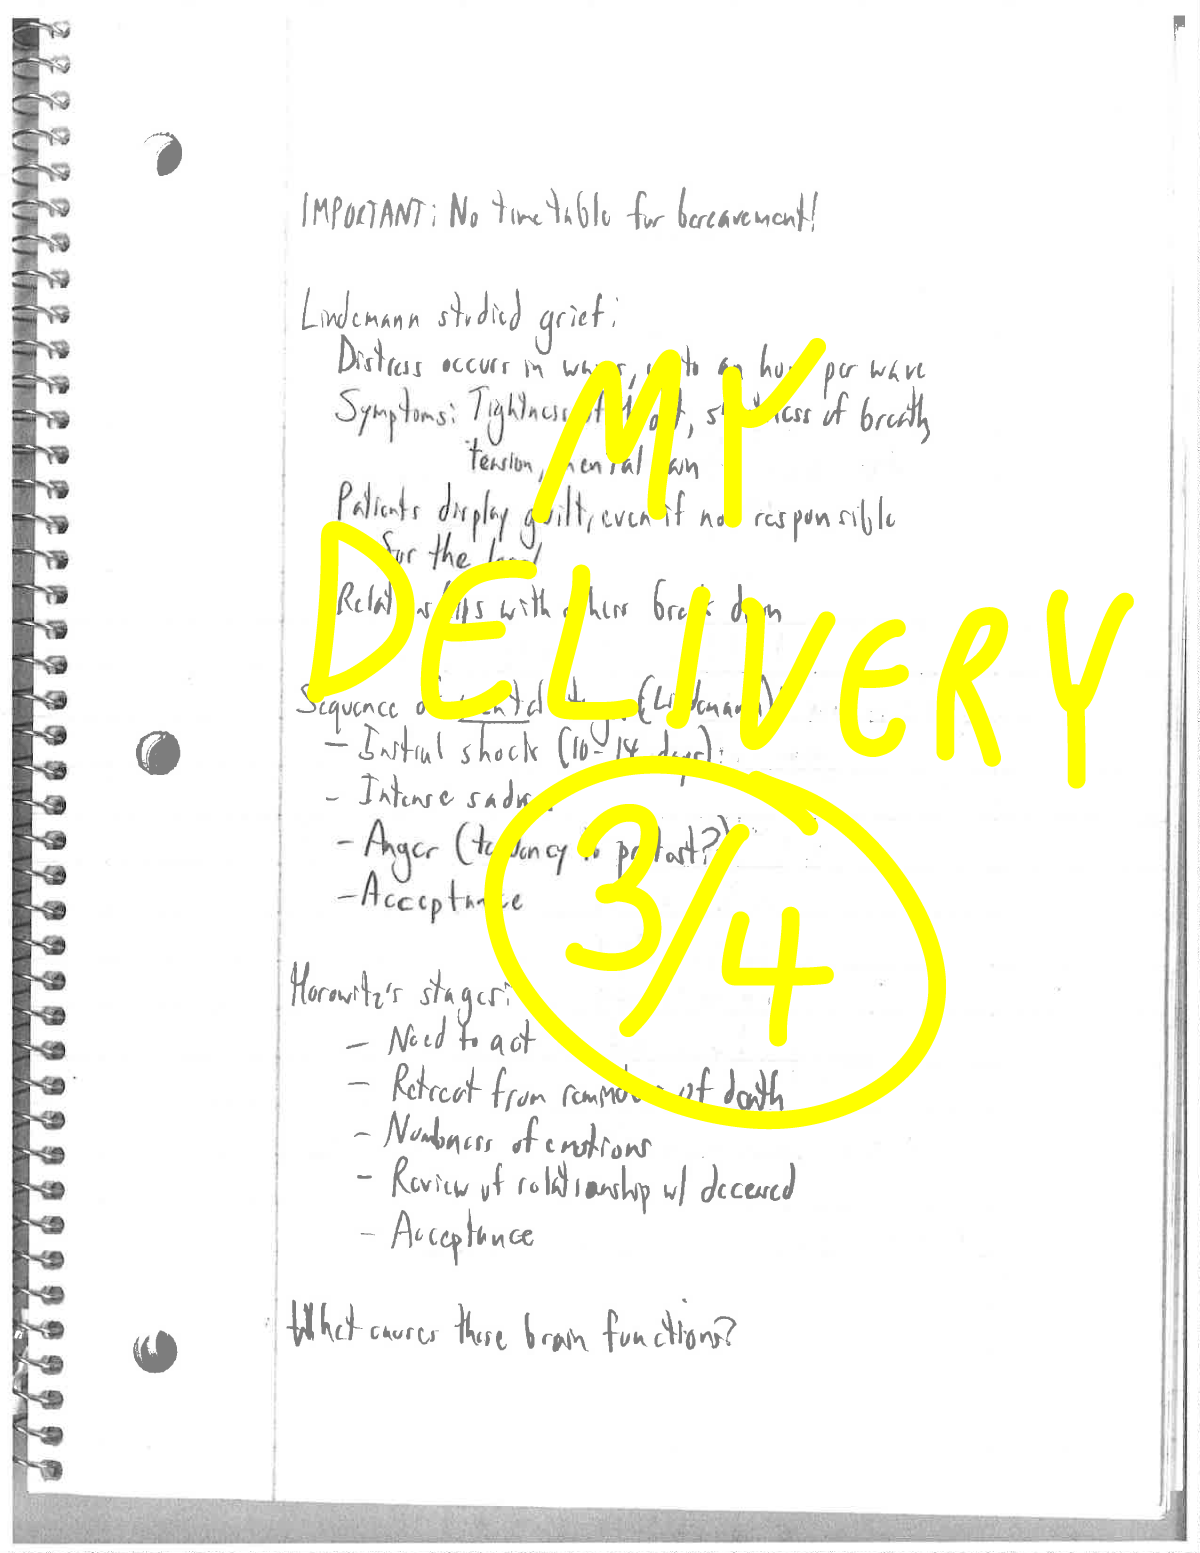 IMPORTANT: No timetable for bereavement!
Lindemann studied grief:
Distress occurs in waves, up to an hour per wave
Symptoms: Tightness of throat, shortness of breath
tension, mental pain
Patients display guilt, even if not responsible
for the
Relationships with others break down
MY
DELIVERY
3/4
Sequence of (Lindemann)
- Initial shock (10-14 days):
- Intense sadness
- Anger (tendency to protest?)
- Acceptance
Horowitz's stages:
- Need to act
- Retreat from reminders of death
- Numbness of emotions
- Review of relationship w/ deceased
- Acceptance
What causes these brain functions?